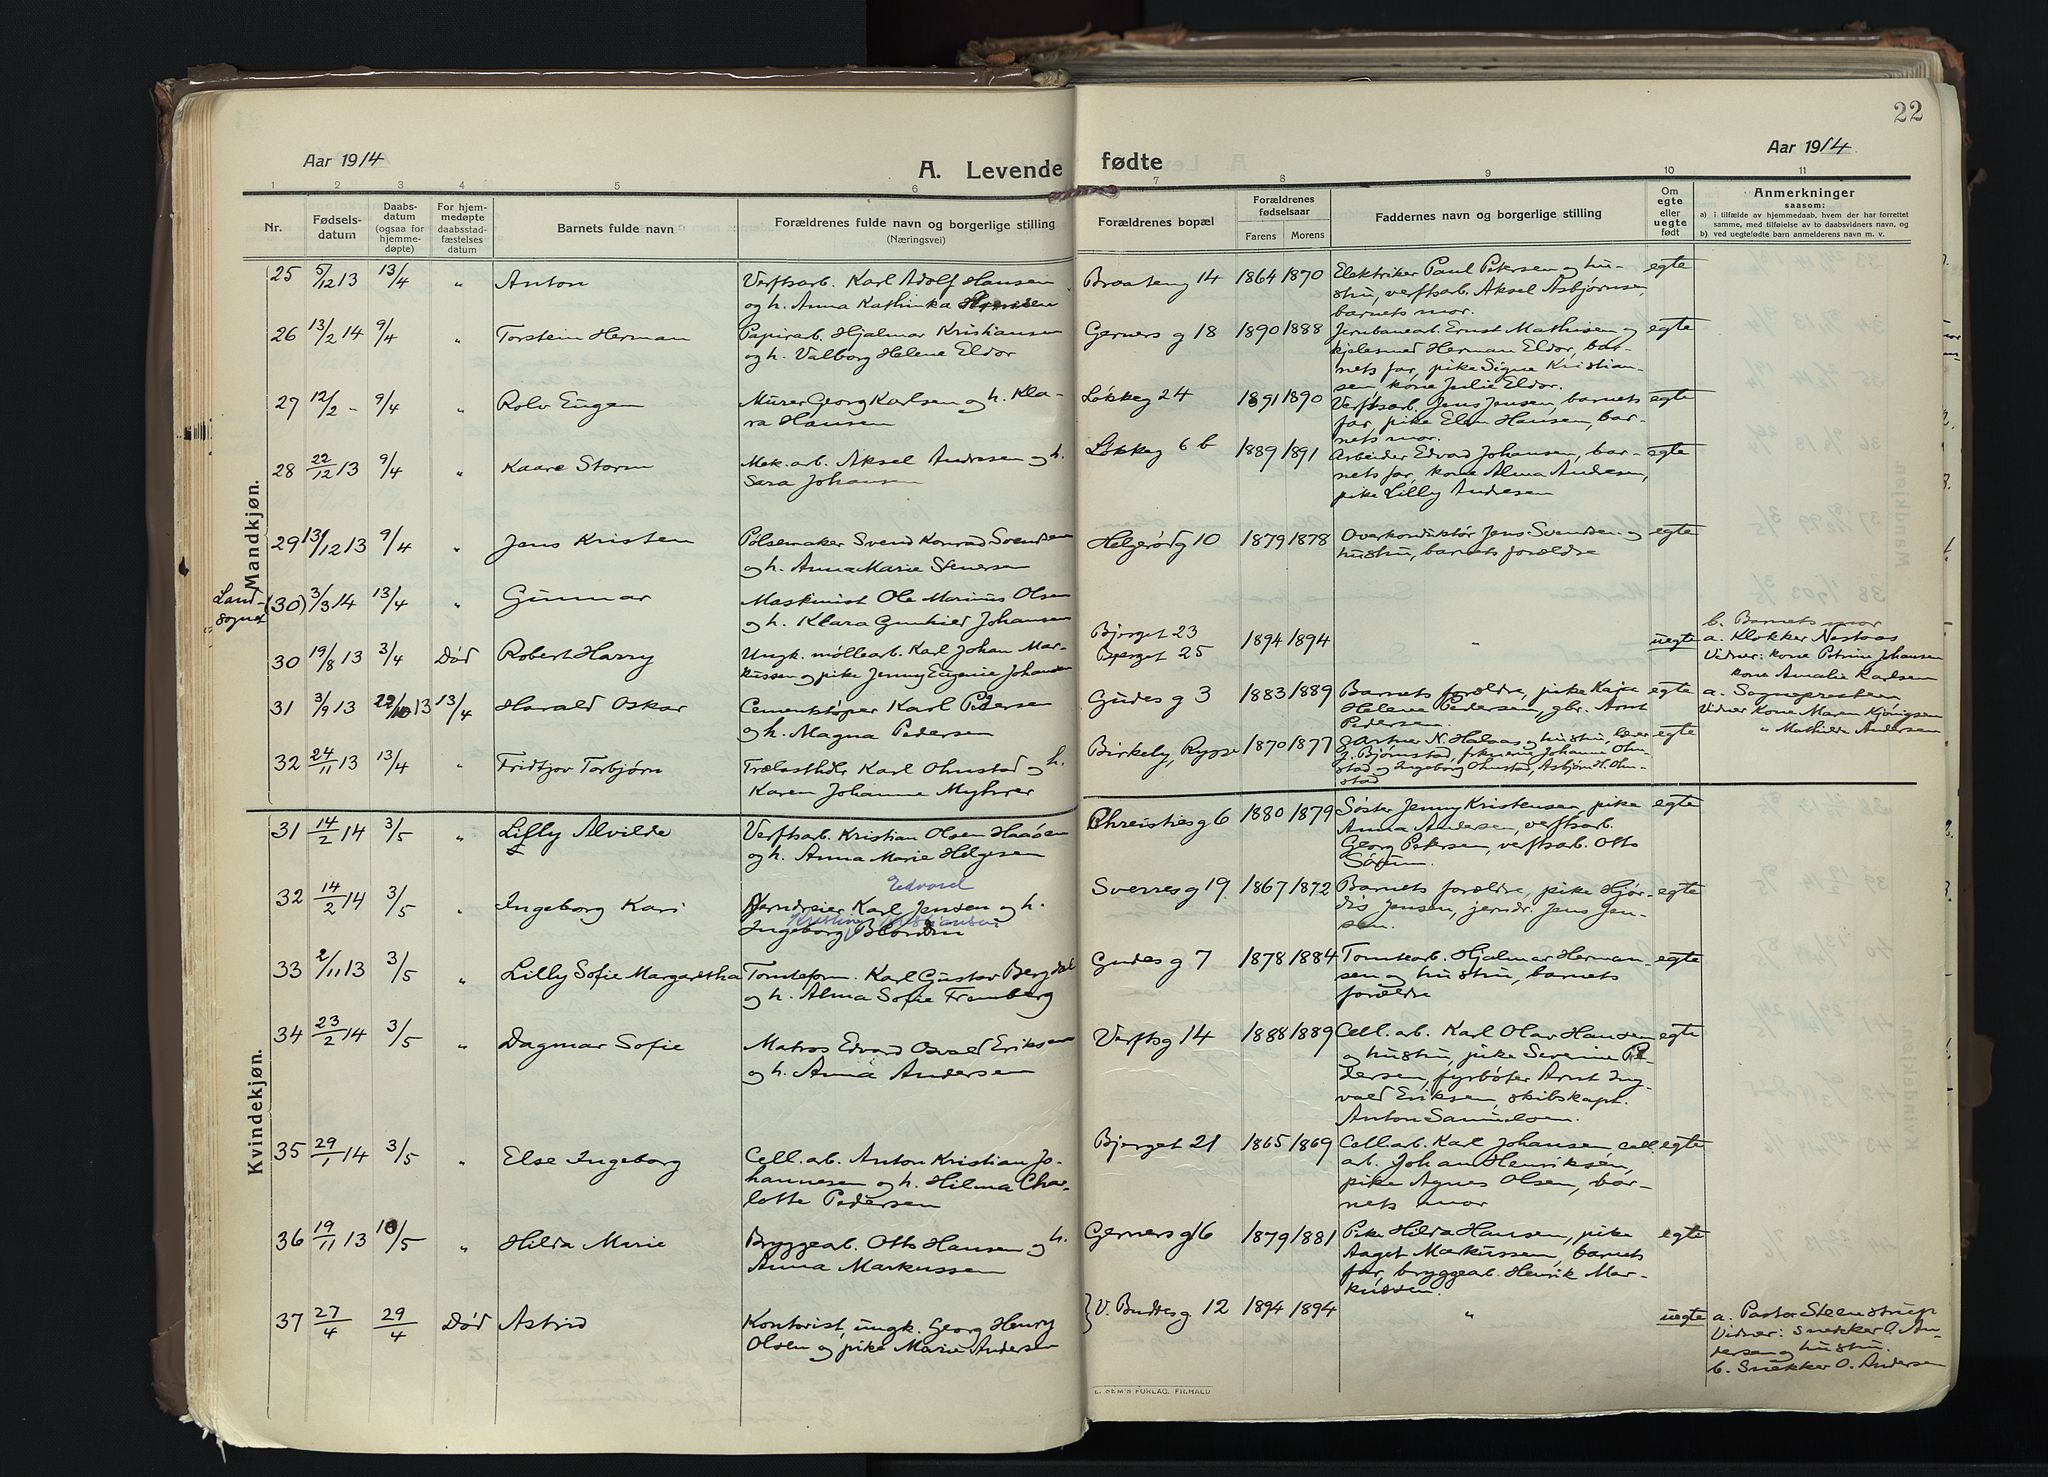 22
Aar 1914
Aar 1914
A. Levende fødte
1 2 3 4 5 6 7 8 9 10 11
Nr.
Fødsels-
datum
Daabs-
datum
(ogsaa for
hjemme-
døpte)
For hjem-
medøpte
daabsstad-
fæstelses
datum
Barnets fulde navn
Forældrenes fulde navn og borgerlige stilling
(Næringsvei)
Forældrenes bopæl
Forældrenes
fødselsaar
Farens Morens
Faddernes navn og borgerlige stilling
Om
egte
eller
uegte
født
Anmerkninger
saasom:
a) i tilfælde av hjemmedaab, hvem der har forrettet
samme, med tilføielse av to daabsvidners navn, og
b) ved uegtefødte barn anmelderens navn m. v.
Mandkjøn.
25 5/12 13 13/4 " Anton
Verftsarb. Karl Adolf Hansen
og h. Anna Kathinka Hansen
Braateng 14 1864 1870
Elektriker Paul Petersen og hu-
stru, verftsarb. Aksel Asbjørnsen,
barnets mor.
egte
26 13/2 14 9/4 " Torstein Herman
Papirarb. Hjalmar Kristiansen
og h. Valborg Helene Eldor
Gerners g 18 1890 1888
Jernbanearb. Ernst Mathisen og
kjelesmed Herman Eldor, bar-
nets far, pike Signe Kristian-
sen, kone Julie Eldor.
egte
27 12/2 - 9/4 " Rolv Eugen
Murer Georg Karlsen og h. Kla-
ra Hansen
Løkkeg 24 1891 1890
Verftsarb. Jens Jensen, barnets
far, pike Elen Hansen, bar-
nets mor.
egte
28 22/12 13 9/4 " Kaare Storm
Mek. arb. Aksel Andresen og h.
Sara Johansen
Løkkeg 6 b 1889 1891
Arbeider Edvard Johansen, bar-
nets far, kone Alma Andresen,
pike Lilly Andresen
egte
29 13/12 13 9/4 " Jens Kristen
Pølsemaker Svend Konrad Svendsen
og h. Anna Marie Stenersen
Helgerødg 10 1879 1878
Overkonduktør Jens Svendsen og
hustru, barnets forældre
egte
Land-
sognet
(30) 3/3 14 13/4 " Gunnar
Maskinist Ole Marius Olsen
og h. Klara Gunhild Johansen
Bjerget 23
30 19/8 13 3/4 Død Robert Harry
Ungk. møllearb. Karl Johan Mar-
kussen og pike Jenny Eugenie Johansen
Bjerget 25 1894 1894
"
uegte
b. Barnets mor
a. Klokker Nestaas
Vidner: kone Petrine Johansen
kone Amalie Karlsen
31 3/9 13 22/10 13 13/4 Harald Oskar
Cementstøper Karl Pedersen
og h. Magna Pedersen
Gudes g 3 1883 1889
Barnets forældre, pike Kaja
Helene Pedersen, gbr. Arnt
Pedersen.
egte
a. Sognepresten
Vidner Kone Maren Kjönigsen
" Mathilde Andersen
32 24/11 13 13/4 " Fridtjov Torbjørn
Trælasthdlr Karl Ohnstad og h.
Karen Johanne Myhrer
Birkely, Rygge 1870 1877
gartner N. Hadaas og hustru, lærer
J. Bjørnstad, frknerne Johanne Ohn-
stad og Ingeborg Ohnstad, Asbjørn H. Ohn-
stad
egte
Kvindekjøn.
31 14/2 14 3/5 " Lilly Alvilde
Verftsarb. Kristian Olsen Haaøen
og h. Anna Marie Helgesen
Chreisties g 6 1880 1879
Søster Jenny Kristensen, pike
Anna Andersen, verftsarb.
Georg Petersen, verftsarb. Otto
Sørum.
egte
32 14/2 14 3/5 " Ingeborg Kari
Edvard
Jerndreier Karl Jensen og h.
Kristine Kristiansen
Ingeborg Blondin
Sverres g 19. 1867 1872
Barnets forældre, pike Hjør-
dis Jensen, jerndr. Jens Jen-
sen.
egte
33 2/11 13 3/5 " Lilly Sofie Margaretha
Tomteform. Karl Gustav Bergdal
og h. Alma Sofie Fremberg
Gudes g 7 1878 1884
Tomtearb. Hjalmar Herman-
sen og hustru, barnets
forældre
egte
34 23/2 14 3/5 " Dagmar Sofie
Matros Edvard Osvald Eriksen
og h. Anna Andersen
Verftsg 14 1888 1889
Cell. arb. Karl Olav Hansen
og hustru, pike Severine Pe-
dersen, fyrbøter Arnt Ing-
vald Eriksen, skibskapt.
Anton Samuelsen.
egte
35 29/1 14 3/5 " Else Ingeborg
Cell. arb. Anton Kristian Jo-
hannesen og h. Hilma Char-
lotte Pedersen
Bjerget 21 1865 1869
Cell. arb. Karl Johansen, cell.
arb. Johan Henriksen,
pike Agnes Olsen, bar-
nets mor
egte
36 19/11 13 10/5 " Hilda Marie
Bryggearb. Otto Hansen og h.
Anna Markussen
Gerners g 16 1879 1881
Pike Hilda Hansen, pike
Aagot Markussen, barnets
far, bryggearb. Henrik Mar-
kussen.
egte
37 27/4 29/4 Død Astrid
Kontorist, ungk. Georg Henry
Olsen og pike Marie Andersen
V. Buddes g 12 1894 1894
"
uegte
a. Pastor Steenstrup
Vidner: Snekker O. An-
dersen og hustru.
b. Snekker O. Andersen
E. SEM'S FORLAG, FR.HALD